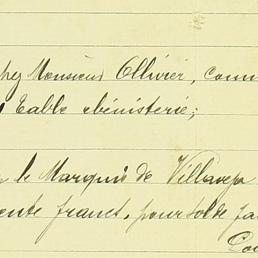 chez Monsieur Ollivier, comm
Table ébénisterie;
le Marquis de Villavep
ente francs, pour solde fa